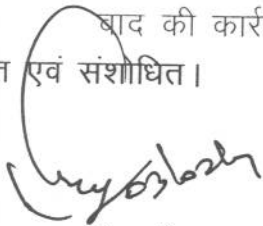 बाद की कार्र
त एवं संशोधित।